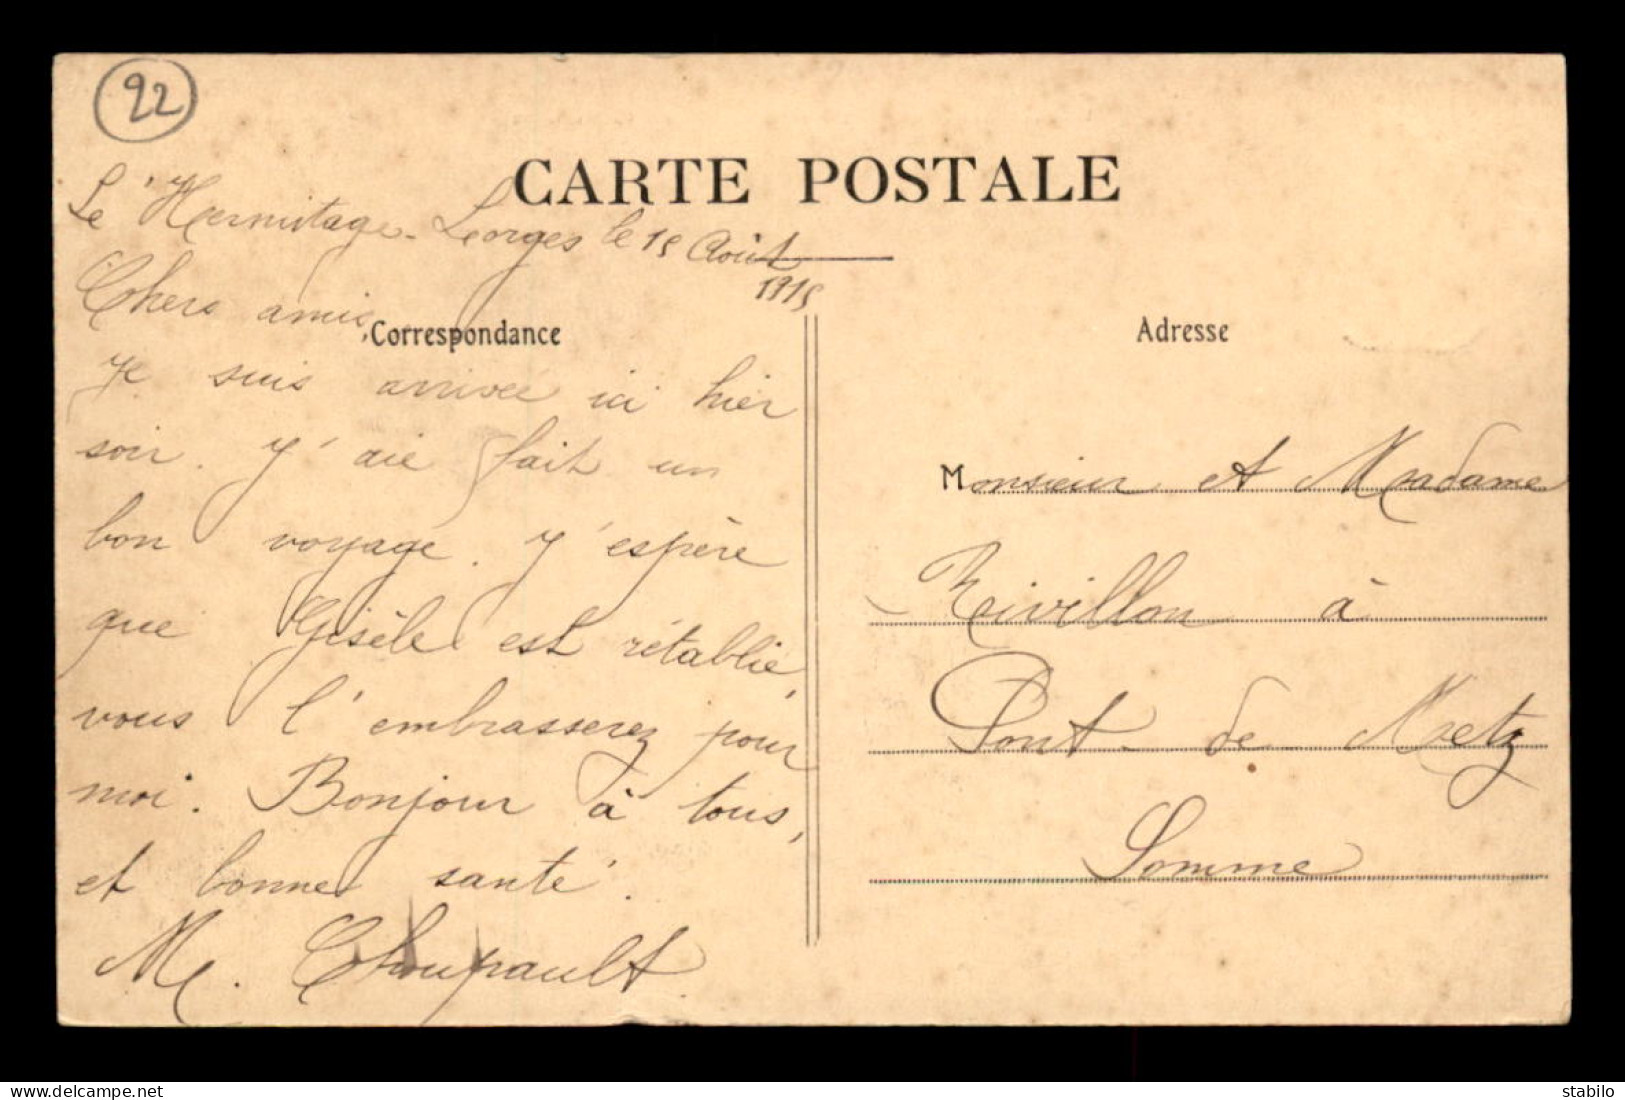 22
CARTE POSTALE
Le 'Hermitage - Lorges le 15 Août
1915
Chers amis,
Correspondance
Je suis arrivée ici hier
soir. J'aie fait un
bon voyage. J'espère
que Gisèle est rétablie,
vous l'embrasserez pour
moi. Bonjour à tous,
et bonne santé.
M. Choupault
Adresse
Monsieur et Madame
à
Pont de Metz
Somme
stabilo
delcampe.net